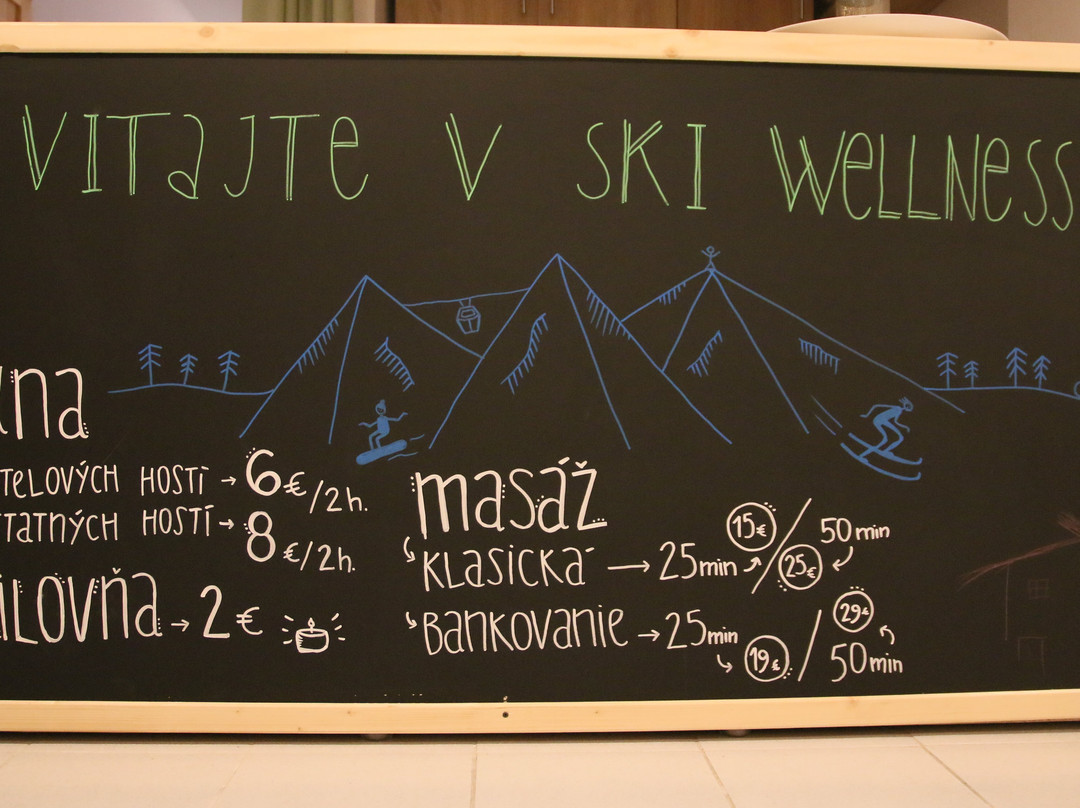 VITAJTE V SKI WELLNESS
na
TELOVÝCH HOSTÍ → 6€/2h.
TATNÝCH HOSTÍ → 8€/2h.
ILOVŇA → 2€
masáž
KLASICKÁ → 25min 15€ / 25€ 50min
BANKOVANIE → 25min 19€ / 29€ 50min